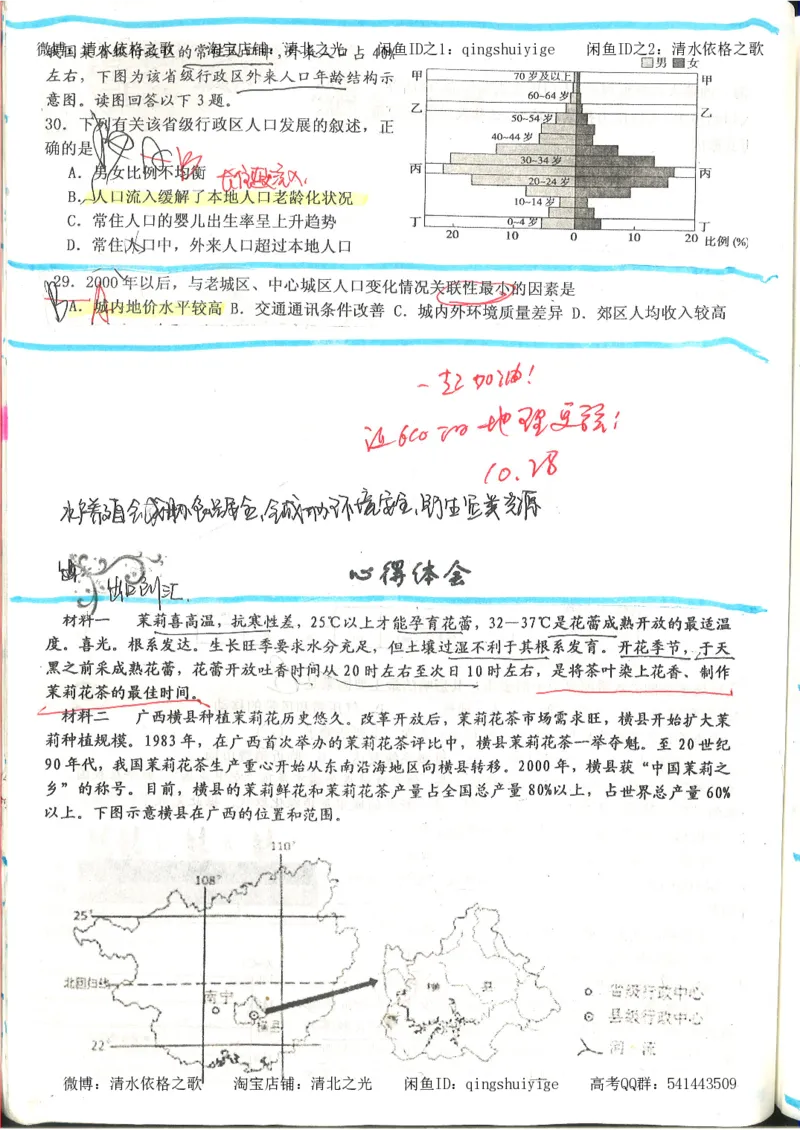 微博：清水依格之歌 淘宝店铺：清北之光 闲鱼ID之1：qingshuiyige 闲鱼ID之2：清水依格之歌
我国某省级行政区的常住人口中，外来人口占 40%
左右，下图为该省级行政区外来人口年龄结构示
意图。读图回答以下 3 题。
30．下列有关该省级行政区人口发展的叙述，正
确的是
A．男女比例不均衡
B．人口流入缓解了本地人口老龄化状况
C．常住人口的婴儿出生率呈上升趋势
D．常住人口中，外来人口超过本地人口
男 女
甲 70 岁及以上 甲
60~64 岁
乙 乙
50~54 岁
40~44 岁
30~34 岁
丙 丙
20~24 岁
10~14 岁
丁 0~4 岁 丁
20 10 0 10 20 比例 (%)
29．2000 年以后，与老城区、中心城区人口变化情况关联性最小的因素是
A．城内地价水平较高 B．交通通讯条件改善 C．城内外环境质量差异 D．郊区人均收入较高
一起加油！
10.28
心得体会
材料一 茉莉喜高温，抗寒性差，25℃以上才能孕育花蕾，32—37℃是花蕾成熟开放的最适温
度。喜光。根系发达。生长旺季要求水分充足，但土壤过湿不利于其根系发育。开花季节，于天
黑之前采成熟花蕾，花蕾开放吐香时间从 20 时左右至次日 10 时左右，是将茶叶染上花香、制作
茉莉花茶的最佳时间。
材料二 广西横县种植茉莉花历史悠久。改革开放后，茉莉花茶市场需求旺，横县开始扩大茉
莉种植规模。1983 年，在广西首次举办的茉莉花茶评比中，横县茉莉花茶一举夺魁。至 20 世纪
90 年代，我国茉莉花茶生产重心开始从东南沿海地区向横县转移。2000 年，横县获“中国茉莉之
乡”的称号。目前，横县的茉莉鲜花和茉莉花茶产量占全国总产量 80%以上，占世界总产量 60%
以上。下图示意横县在广西的位置和范围。
110°
108°
25°
北回归线
南宁
横县
22°
省级行政中心
县级行政中心
河 流
微博：清水依格之歌 淘宝店铺：清北之光 闲鱼ID：qingshuiyige 高考QQ群：541443509